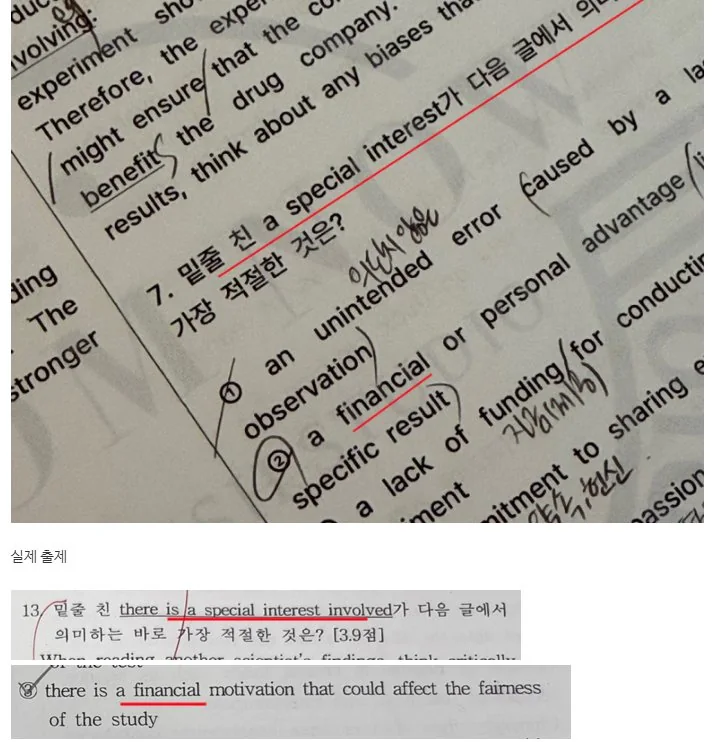 volving:
experiment sho
Therefore, the exper
might ensure that the co
benefit the drug company.
results, think about any biases tha
ding
The
stronger
7. 밑줄 친 a special interest가 다음 글에서 의미
가장 적절한 것은?
의도하지 않은
① an unintended error caused by a la
observation
② a financial or personal advantage
specific result
a lack of funding for conductin
iment
mitment to sharing e
약속, 헌신
passion
실제 출제
13. 밑줄 친 there is a special interest involved가 다음 글에서
의미하는 바로 가장 적절한 것은? [3.9점]
When reading another scientist's findings, think critically
of the test
③ there is a financial motivation that could affect the fairness
of the study